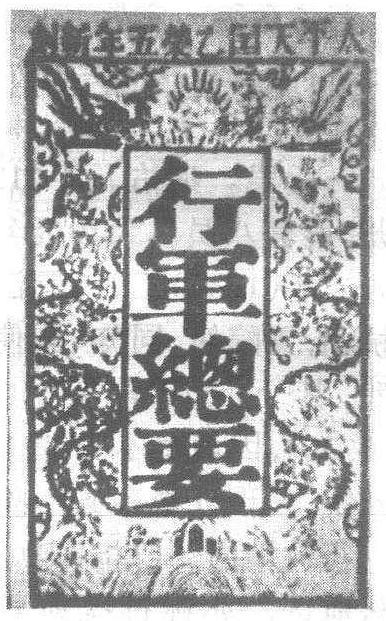 太平天囯乙榮五年新刻
行軍總要